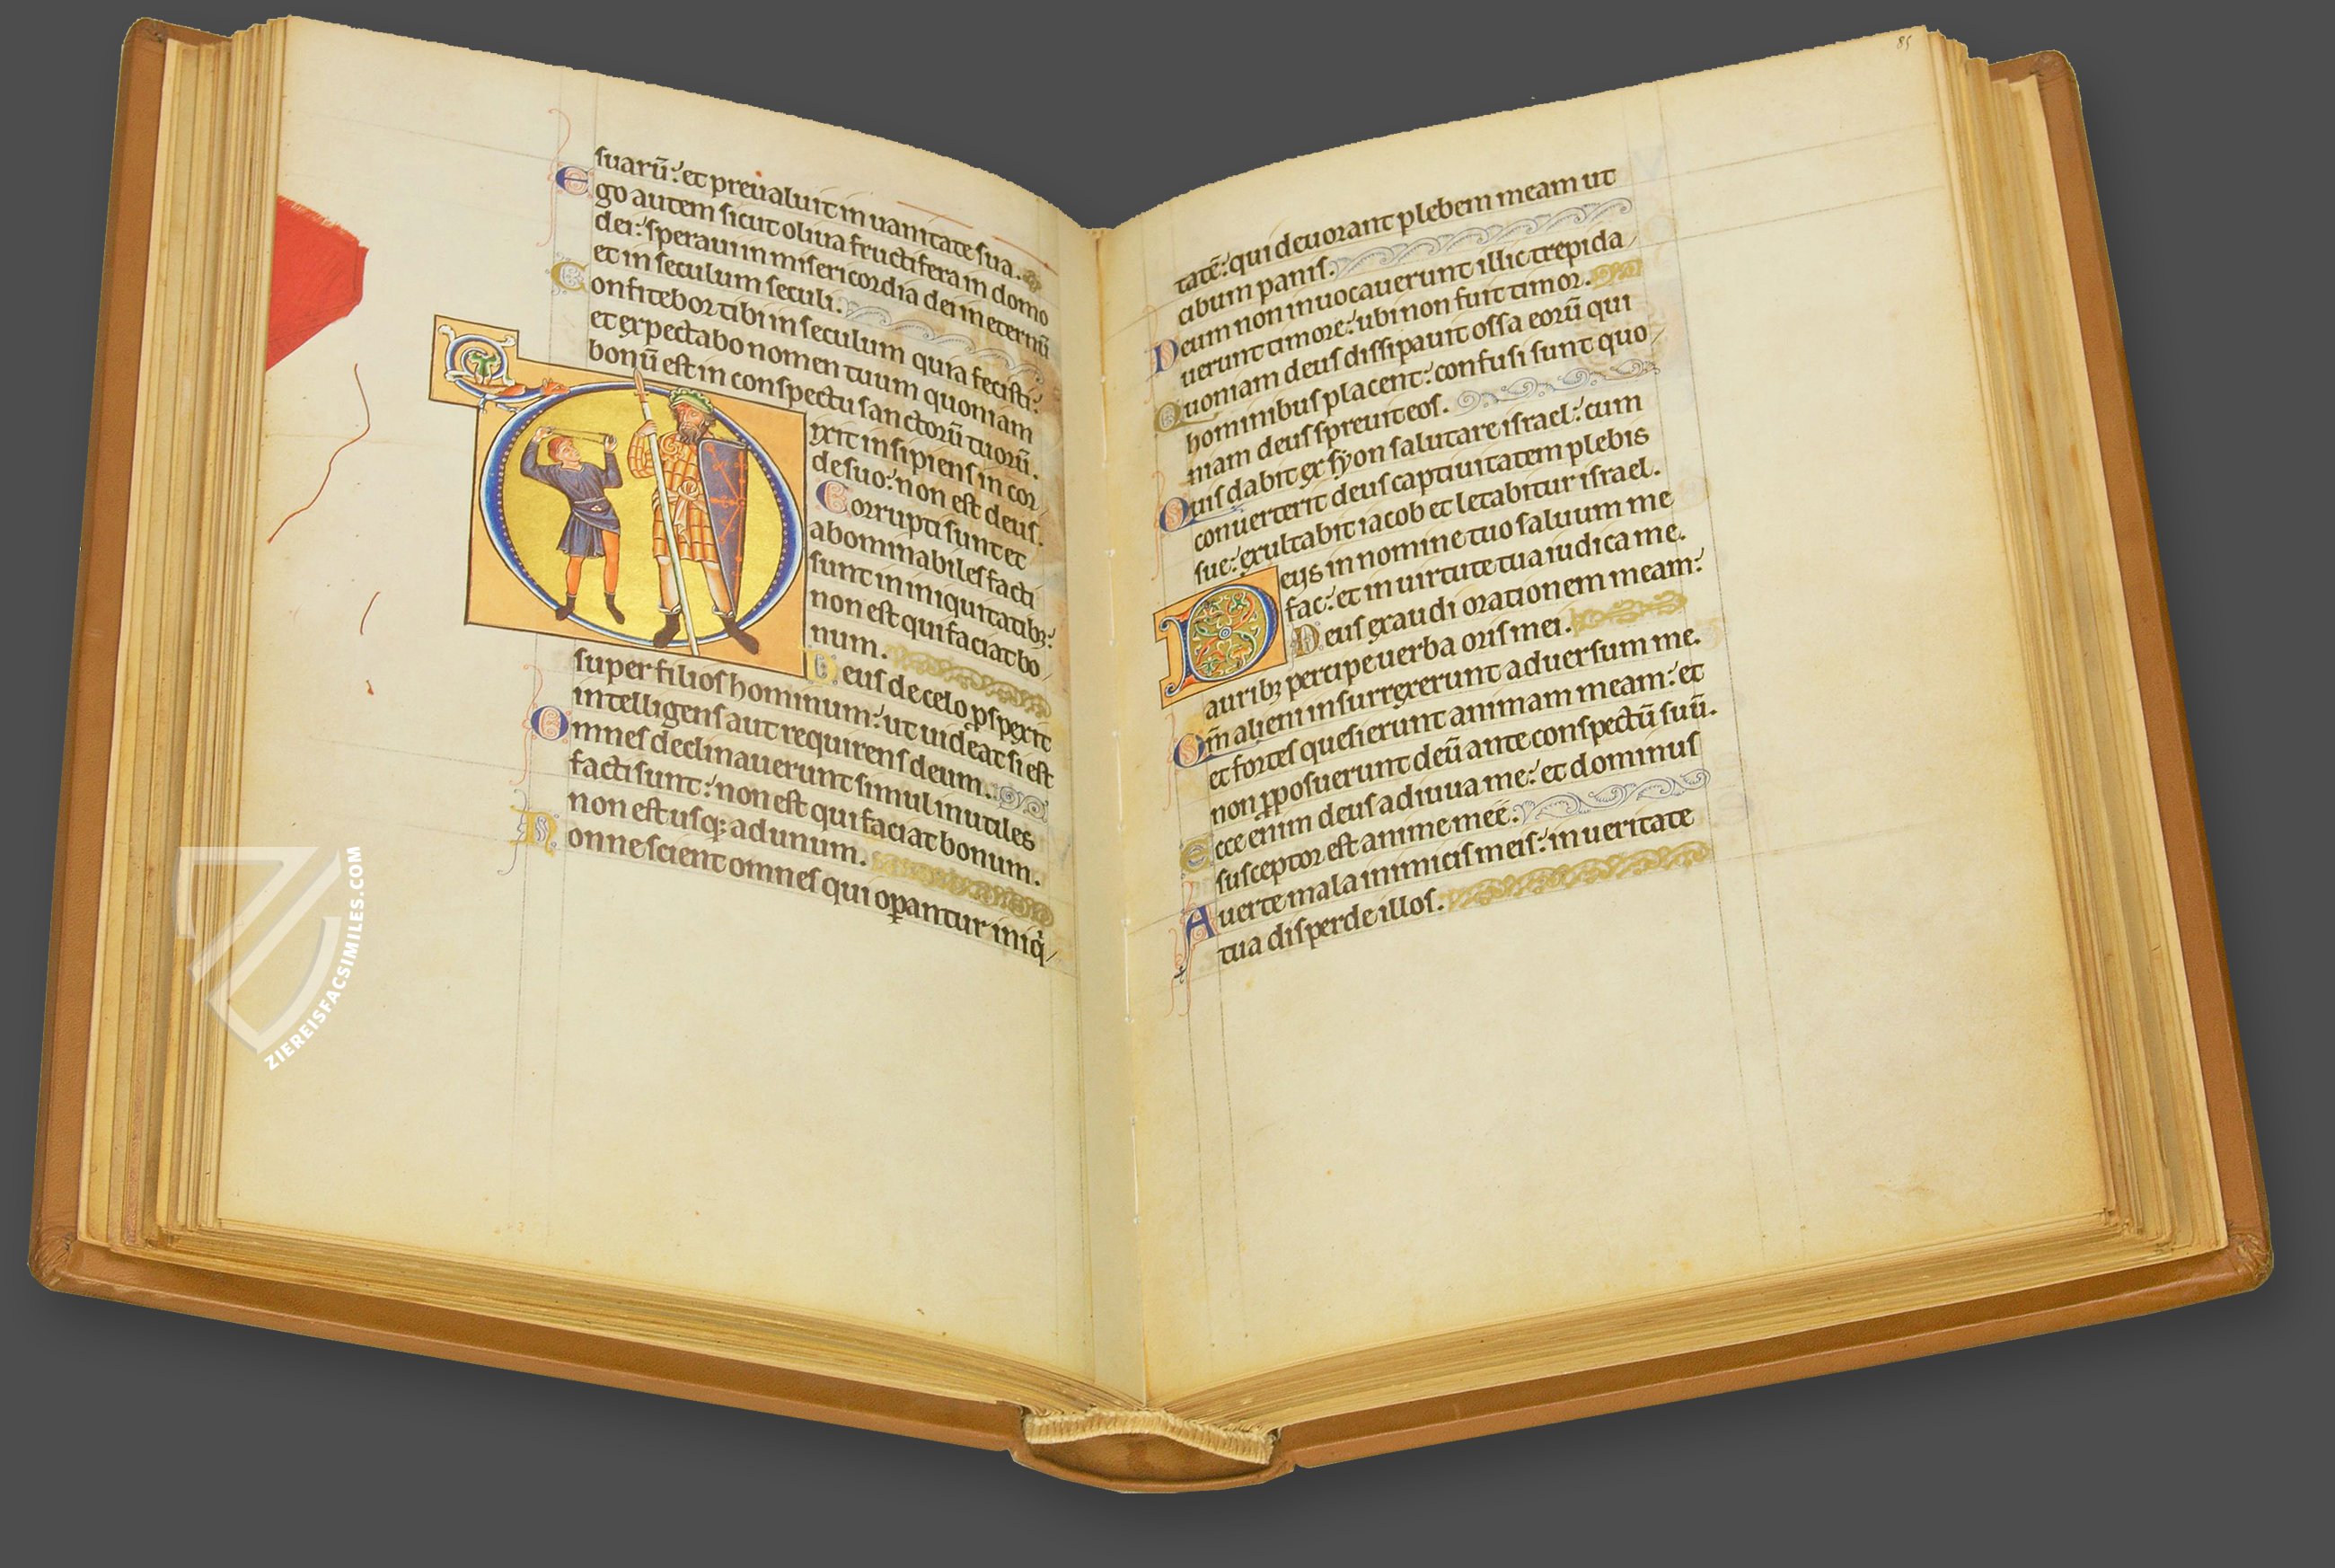 suarū: et preualuit in uanitate sua.
Ego autem sicut oliua fructifera in domo
dei: speraui in misericordia dei in eternū
et in seculum seculi.
Confitebor tibi in seculum quia fecisti:
et expectabo nomen tuum quoniam
bonū est in conspectu sanctorū tuorū.
Dixit insipiens in cor
de suo: non est deus.
Corrupti sunt et
abominabiles facti
sunt in iniquitatibꝫ:
non est qui faciat bo
num.
Deus de celo ꝓspexit
super filios hominum: ut uideat si est
intelligens aut requirens deum.
Omnes declinauerunt simul inutiles
facti sunt: non est qui faciat bonum.
non est usqꝫ ad unum.
Nonne scient omnes qui oꝑantur iniq̇
85
tatē: qui deuorant plebem meam ut
cibum panis.
Deum non inuocauerunt illic trepida
uerunt timore: ubi non fuit timor.
Quoniam deus dissipauit ossa eorū qui
hominibus placent: confusi sunt quo
niam deus spreuit eos.
Quis dabit ex syon salutare israel: cum
conuerterit deus captiuitatem plebis
sue: exultabit iacob et letabitur israel.
Deus in nomine tuo saluum me
fac: et in uirtute tua iudica me.
Deus exaudi orationem meam:
auribꝫ percipe uerba oris mei.
Qm̄ alieni insurrexerunt aduersum me.
et fortes quesierunt animam meam: et
non ꝓposuerunt deū ante conspectū suū.
Ecce enim deus adiuua me: et dominus
susceptor est anime mee:
Auerte mala inimicis meis: in ueritate
tua disperde illos.
ZIEREISFACSIMILES.COM